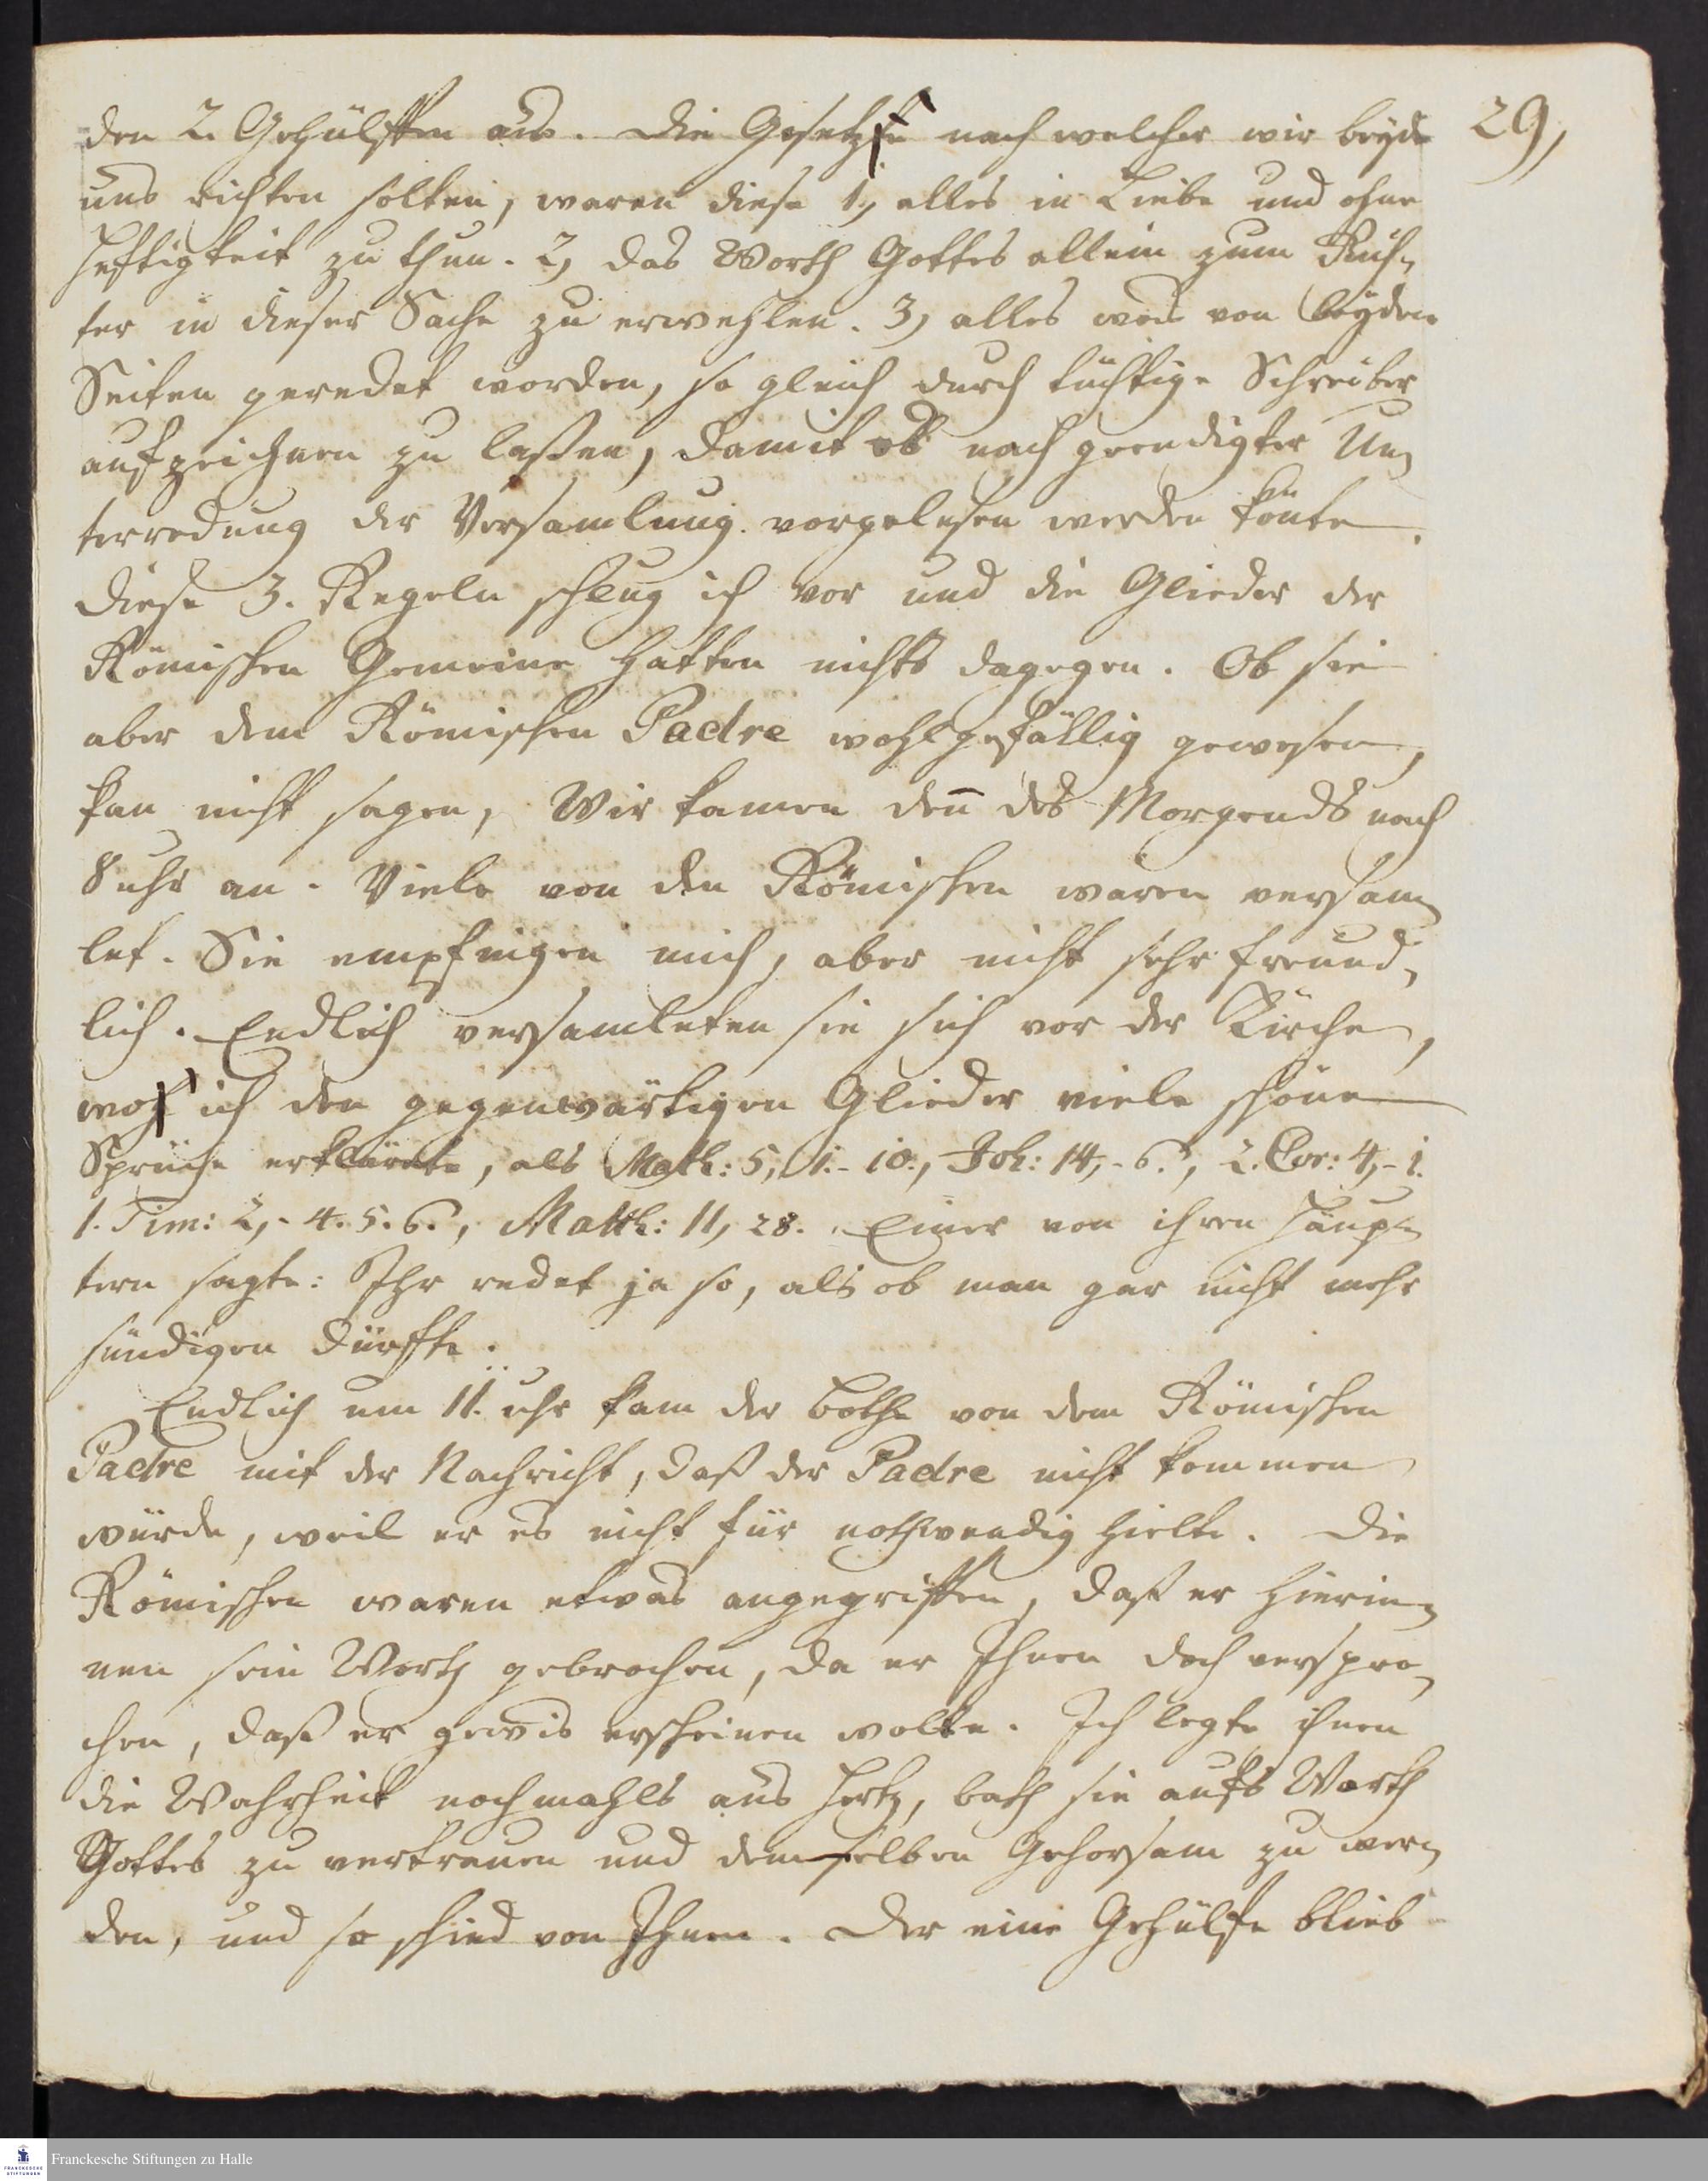 29,
den 2. Gehülffen aus. Die Gesetze nach welcher wir beyde
uns richten solten, waren diese 1, alles in Liebe und ohne
Heftigkeit zu thun. 2, das Worth Gottes allein zum Rich-
ter in dieser Sache zu erwehlen. 3, alles was von beyden
Seiten geredet worden, so gleich durch tüchtige Schreiber
aufzeichnen zu laßen, damit es nach geendigter Un-
terredung der Versamlung vorgelesen werden könte.
Diese 3. Regeln schlug ich vor und die Glieder der
Römischen Gemeine hatten nichts dagegen. Ob sie
aber dem Römischen Padre wohlgefällig gewesen,
kan nicht sagen, Wir kamen den̅ des Morgends nach
8 uhr an. Viele von den Römischen waren versam-
let. Sie empfingen mich, aber nicht sehr freund-
lich. Endlich versamleten sie sich vor der Kirche,
wo ich den gegenwärtigen Glieder viele schöne
Sprüche erklärete, als Math: 5, 1.-10., Joh: 14,-6., 2. Cor: 4,-1.
1. Tim: 2,-4. 5. 6., Matth: 11, 28. Einer von ihren Häup-
tern sagte: Ihr redet ja so, als ob man gar nicht mehr
sündigen dürffte.
Endlich um 11. uhr kam der Bothe von dem Römischen
Padre mit der Nachricht, daß der Padre nicht kommen
würde, weil er es nicht für nothwendig hielte. Die
Römischen waren etwas angegriffen, daß er hierin-
nen sein Worth gebrochen, da er Ihnen doch verspro-
chen, daß er gewis erscheinen wolte. Ich legte ihnen
die Wahrheit nochmahls ans Hertz, bath sie aufs Worth
Gottes zu vertrauen und demselben Gehorsam zu wer-
den, und so schied von Ihnen. Der eine Gehülfe blieb
Franckesche Stiftungen zu Halle
FRANCKESCHE
STIFTUNGEN